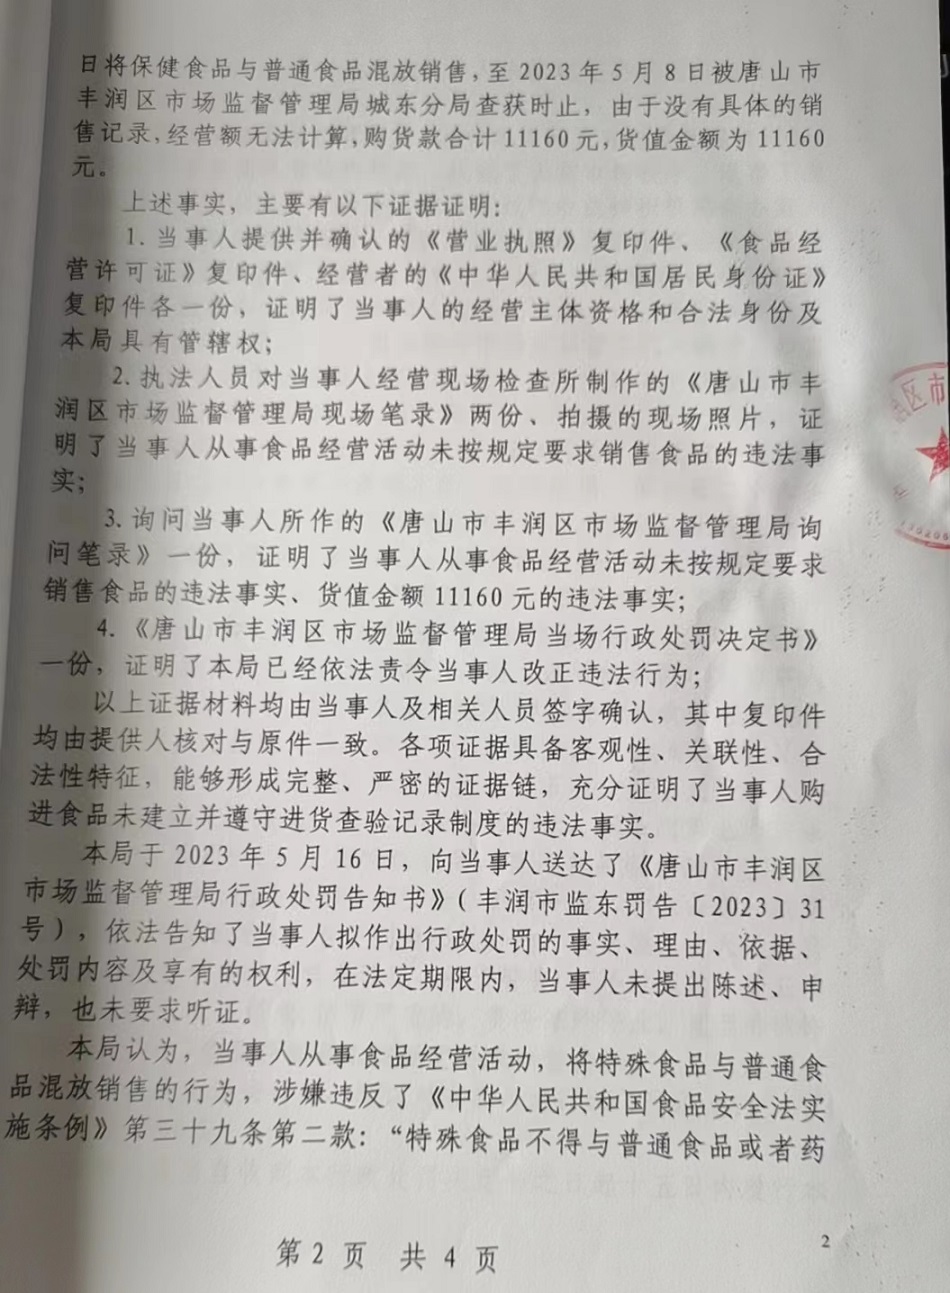 日将保健食品与普通食品混放销售，至 2023 年 5 月 8 日被唐山市
丰润区市场监督管理局城东分局查获时止，由于没有具体的销
售记录，经营额无法计算，购货款合计 11160 元，货值金额为 11160
元。
上述事实，主要有以下证据证明：
1. 当事人提供并确认的《营业执照》复印件、《食品经
营许可证》复印件、经营者的《中华人民共和国居民身份证》
复印件各一份，证明了当事人的经营主体资格和合法身份及
本局具有管辖权；
2. 执法人员对当事人经营现场检查所制作的《唐山市丰
润区市场监督管理局现场笔录》两份、拍摄的现场照片，证
明了当事人从事食品经营活动未按规定要求销售食品的违法事
实；
3. 询问当事人所作的《唐山市丰润区市场监督管理局询
问笔录》一份，证明了当事人从事食品经营活动未按规定要求
销售食品的违法事实、货值金额 11160 元的违法事实；
4. 《唐山市丰润区市场监督管理局当场行政处罚决定书》
一份，证明了本局已经依法责令当事人改正违法行为；
以上证据材料均由当事人及相关人员签字确认，其中复印件
均由提供人核对与原件一致。各项证据具备客观性、关联性、合
法性特征，能够形成完整、严密的证据链，充分证明了当事人购
进食品未建立并遵守进货查验记录制度的违法事实。
本局于 2023 年 5 月 16 日，向当事人送达了《唐山市丰润区
市场监督管理局行政处罚告知书》（丰润市监东罚告〔2023〕31
号），依法告知了当事人拟作出行政处罚的事实、理由、依据、
处罚内容及享有的权利，在法定期限内，当事人未提出陈述、申
辩，也未要求听证。
本局认为，当事人从事食品经营活动，将特殊食品与普通食
品混放销售的行为，涉嫌违反了《中华人民共和国食品安全法实
施条例》第三十九条第二款：“特殊食品不得与普通食品或者药
第 2 页 共 4 页
2
区市